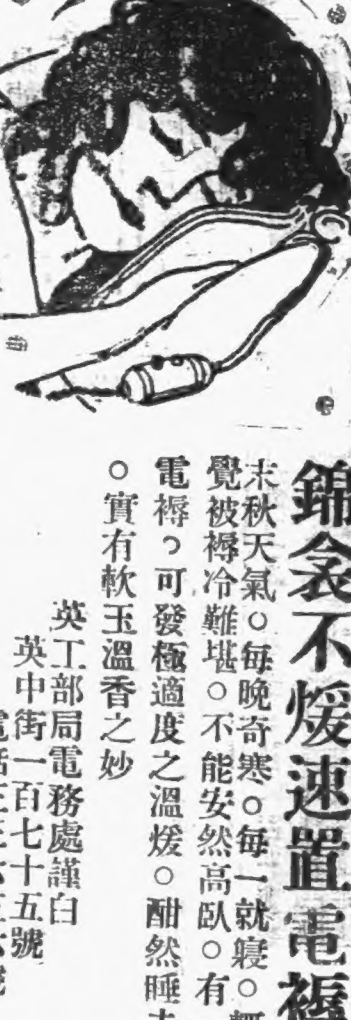 錦衾不煖速置電褥
末秋天氣。每晚奇寒。每一就寢。輒
覺被褥冷難堪。不能安然高臥。有
電褥。可發極適度之溫煖。酣然睡去
。實有軟玉溫香之妙
英工部局電務處謹白
英中街一百七十五號